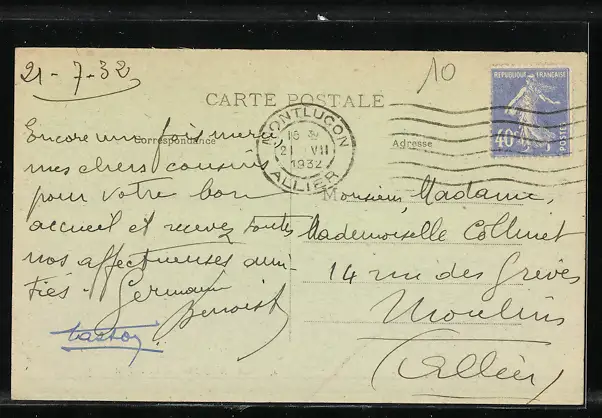 21-7-32
10
CARTE POSTALE
REPUBLIQUE FRANÇAISE
40c
POSTES
MONTLUÇON
16 30
21 VII
1932
ALLIER
Correspondance
Adresse
Encore une fois merci
mes chers cousins
pour votre bon
accueil et recevez toutes
nos affectueuses ami-
tiés. Germaine
Benoist
Monsieur, Madame,
Mademoiselle Collinet
14 rue des Grèves
Moulins
(Allier)